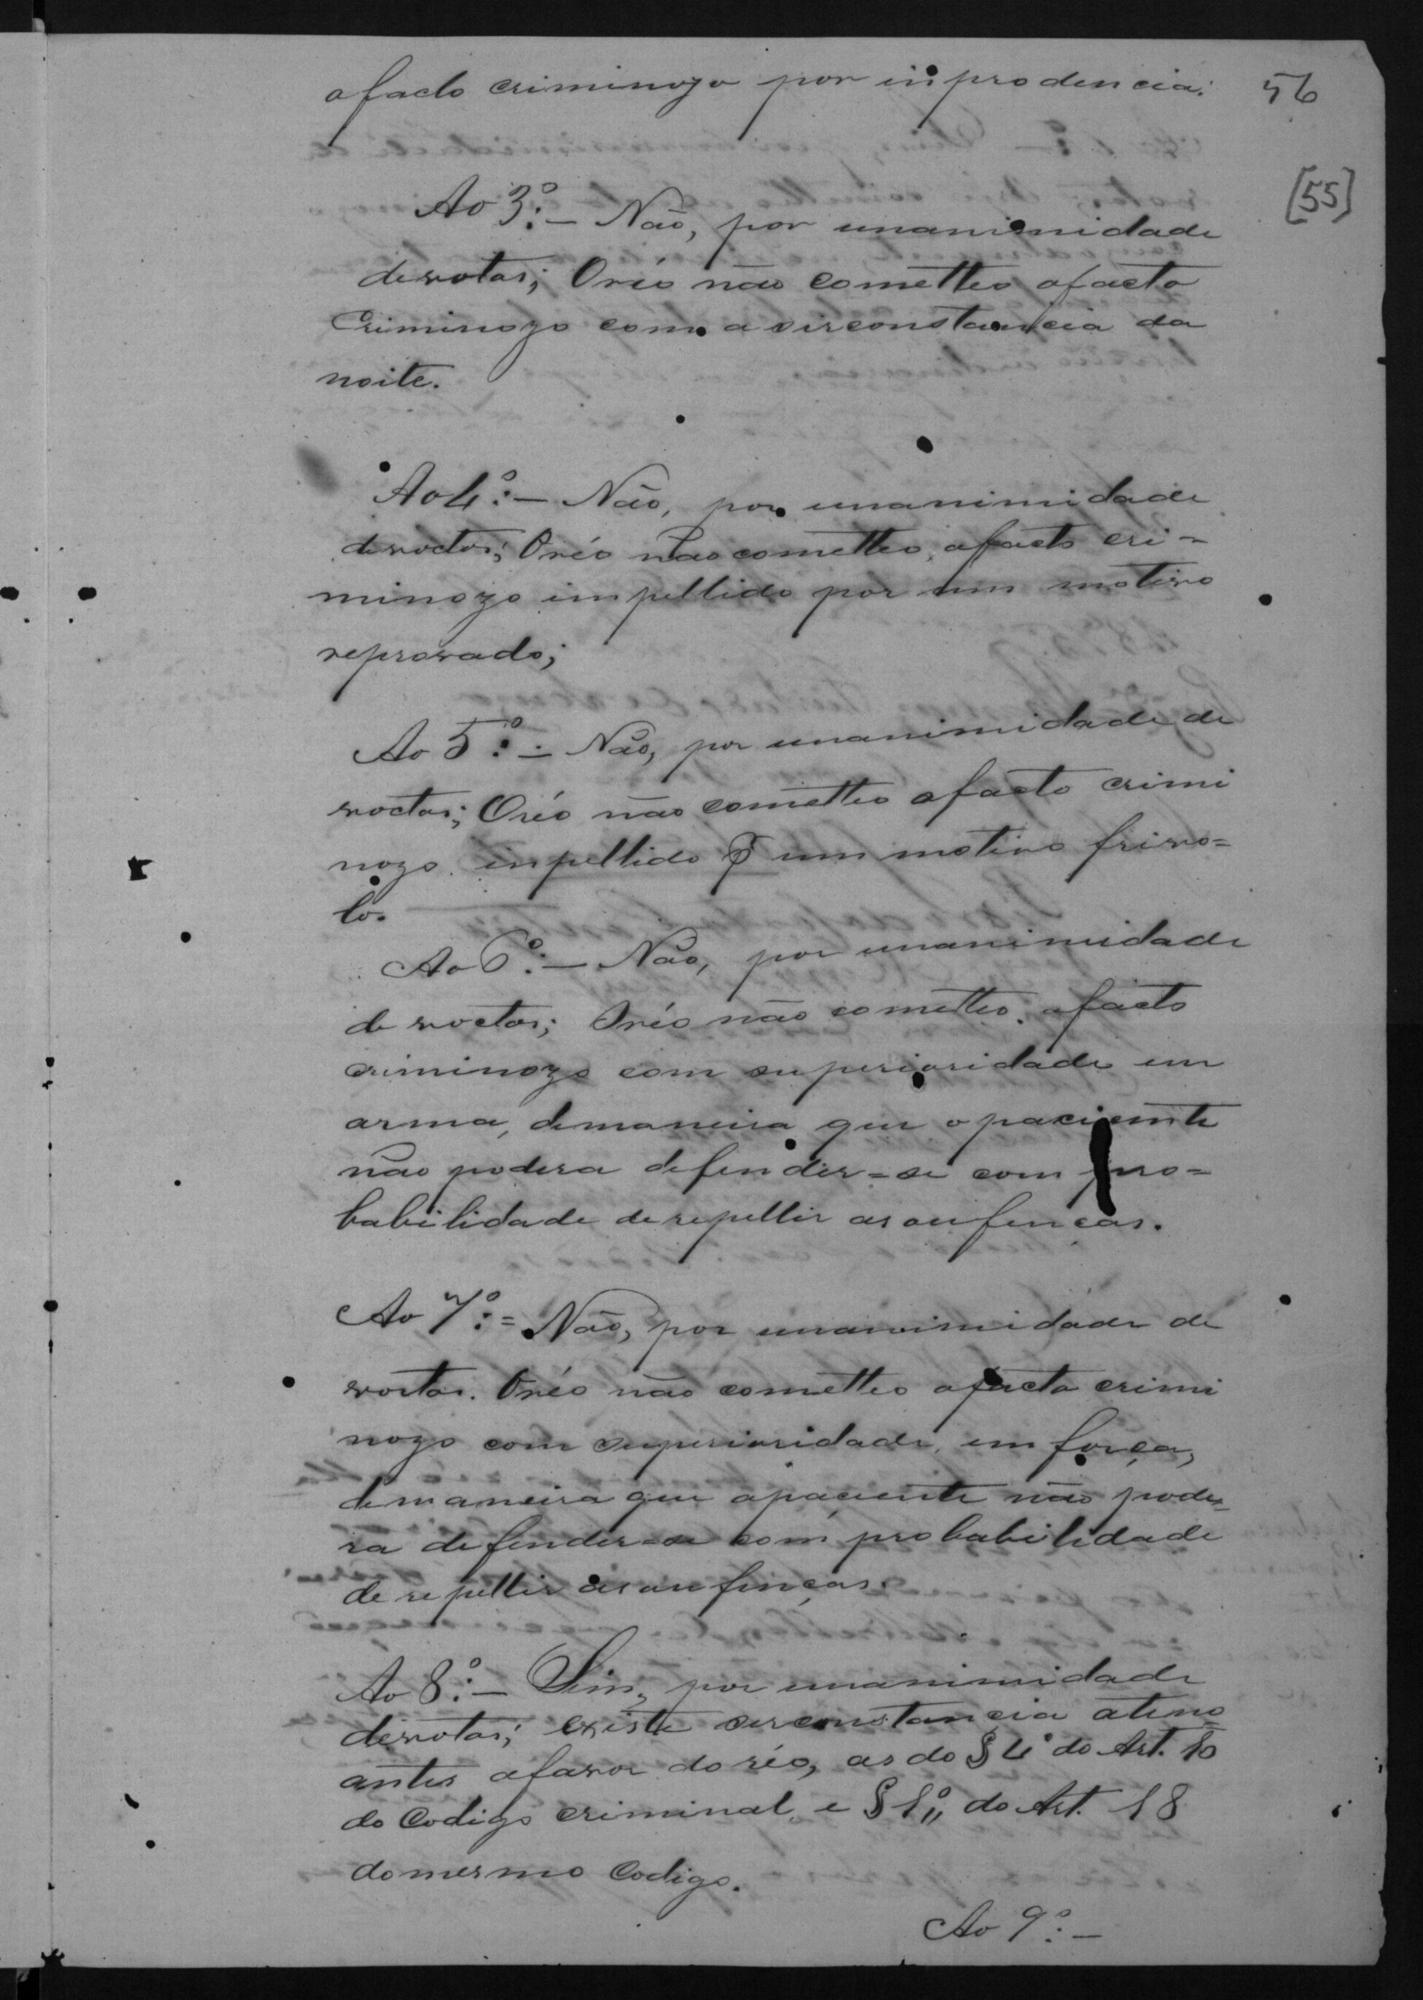 o facto criminozo por inprodencia.
56
[55]
Ao 3º:– Não, por unanimidade
de votos; O réo não cometteo o facto
Criminozo com a circonstancia da
noite.
Ao 4º:– Não, por unanimidade
de voctos; O réo não cometteo o facto cri-
minozo impellido por um motivo
reprovado;
Ao 5º:– Não, por unanimidade de
voctos; O réo não cometteo o facto crimi
nozo inpellido p um motivo frivo=
lo.
Ao 6º:– Não, por unanimidade
de voctos; O réo não cometteo o facto
criminozo com superioridade em
arma, de maneira que o paciente
não podera defender=se com pro=
babilidade de repellir as oufenças.
Ao 7º:= Não, por unanimidade de
voctos. O réo não cometteo o facto crimi
nozo com superioridade em força,
de maneira que o paciente não pode-
ra defender=se com probabilidade
de repellir as oufenças.
Ao 8º:– Sim, por unanimidade
de votos; existe circonstancia atino
antes a favor do réo, as do § 4º do Art. 10
do Codigo criminal, e § 1º do Art. 18
do mesmo Codigo.
Ao 9º:–